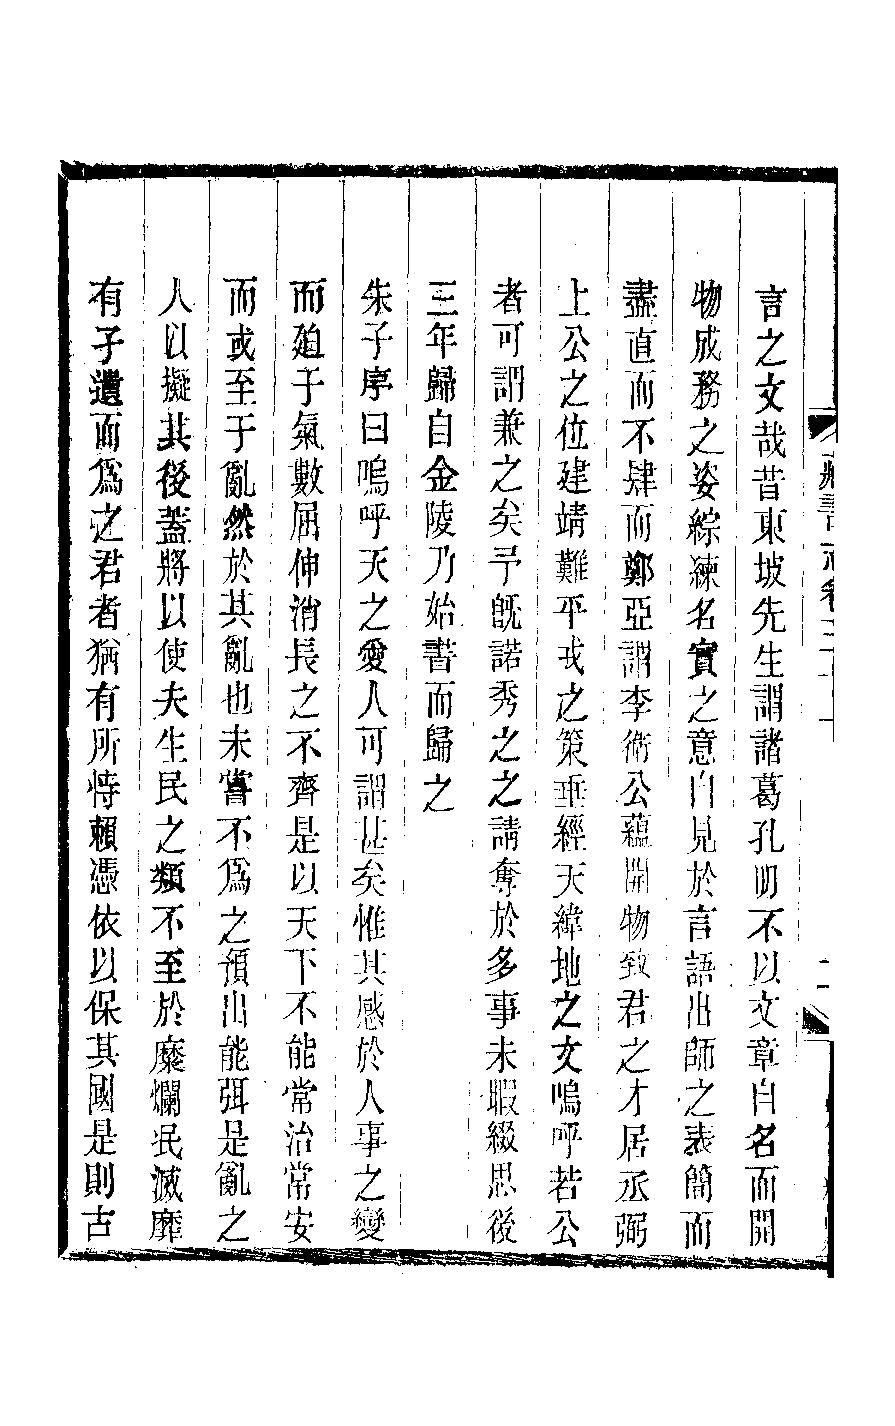 言之文哉昔東坡先生謂諸葛孔明不以文章自名而開
物成務之姿綜練名實之意自見於言語出師之表簡而
盡直而不肆而鄭亞謂李衛公蘊開物致君之才居丞弼
上公之位建靖難平戎之策垂經天緯地之文嗚呼若公
者可謂兼之矣予旣諾秀之之請奪於多事未暇綴思後
三年歸自金陵乃始書而歸之
朱子序曰嗚呼天之愛人可謂甚矣惟其感於人事之變
而廹于氣數屈伸消長之不齊是以天下不能常治常安
而或至于亂然於其亂也未嘗不爲之預出能弭是亂之
人以擬其後蓋將以使夫生民之類不至於糜爛泯滅靡
有孑遺而爲之君者猶有所恃賴憑依以保其國是則古